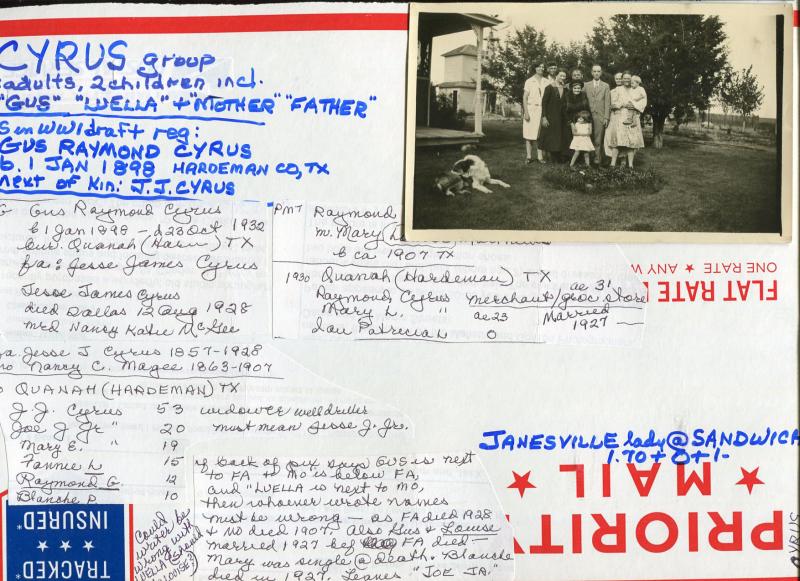 CYRUS group
adults, 2 children incl.
"GUS" "LUELLA" + "MOTHER" "FATHER"
WWI draft reg:
GUS RAYMOND CYRUS
b. 1 JAN 1898 HARDEMAN CO, TX
next of kin: J.J. CYRUS
Gus Raymond Cyrus
b 1 Jan 1898 - d 23 Oct 1932
bur. Quanah (Hard) TX
fa: Jesse James Cyrus
Jesse James Cyrus
died Dallas 12 Aug 1928
mrd Nancy Katie McGee
fa Jesse J Cyrus 1857-1928
mo Nancy C. Magee 1863-1907
QUANAH (HARDEMAN) TX
J. J. Cyrus 53 widower well driller
Joe J Jr " 20 must mean Jesse J. Jr.
Mary E. " 19
Fannie L 15
Raymond G. 12
Blanche P. 10
PMT Raymond
m. Mary
b ca 1907 TX
1930 Quanah (Hardeman) TX
Raymond Cyrus ae 31 merchant/groc. store
Mary L. " ae 23 Married 1927
dau Patricia L 0
if back of pix says GUS is next
to FA + MO is below FA,
and "LUELLA is next to MO,
then whoever wrote names
must be wrong - as FA died 1928
+ MO died 1907. Also Gus + Louise
married 1927 bef FA died -
Mary was single @ death. Blanche
died in 1927. Leaves "JOE JR."
Could
writer be
wrong with
LUELLA (should
LOUISE?)
JANESVILLE lady @ SANDWICH
1.70 + 0 + 1-
FLAT RATE
ONE RATE ★ ANY W
PRIORITY
★ MAIL ★
TRACKED
★ ★ ★
INSURED
CYRUS